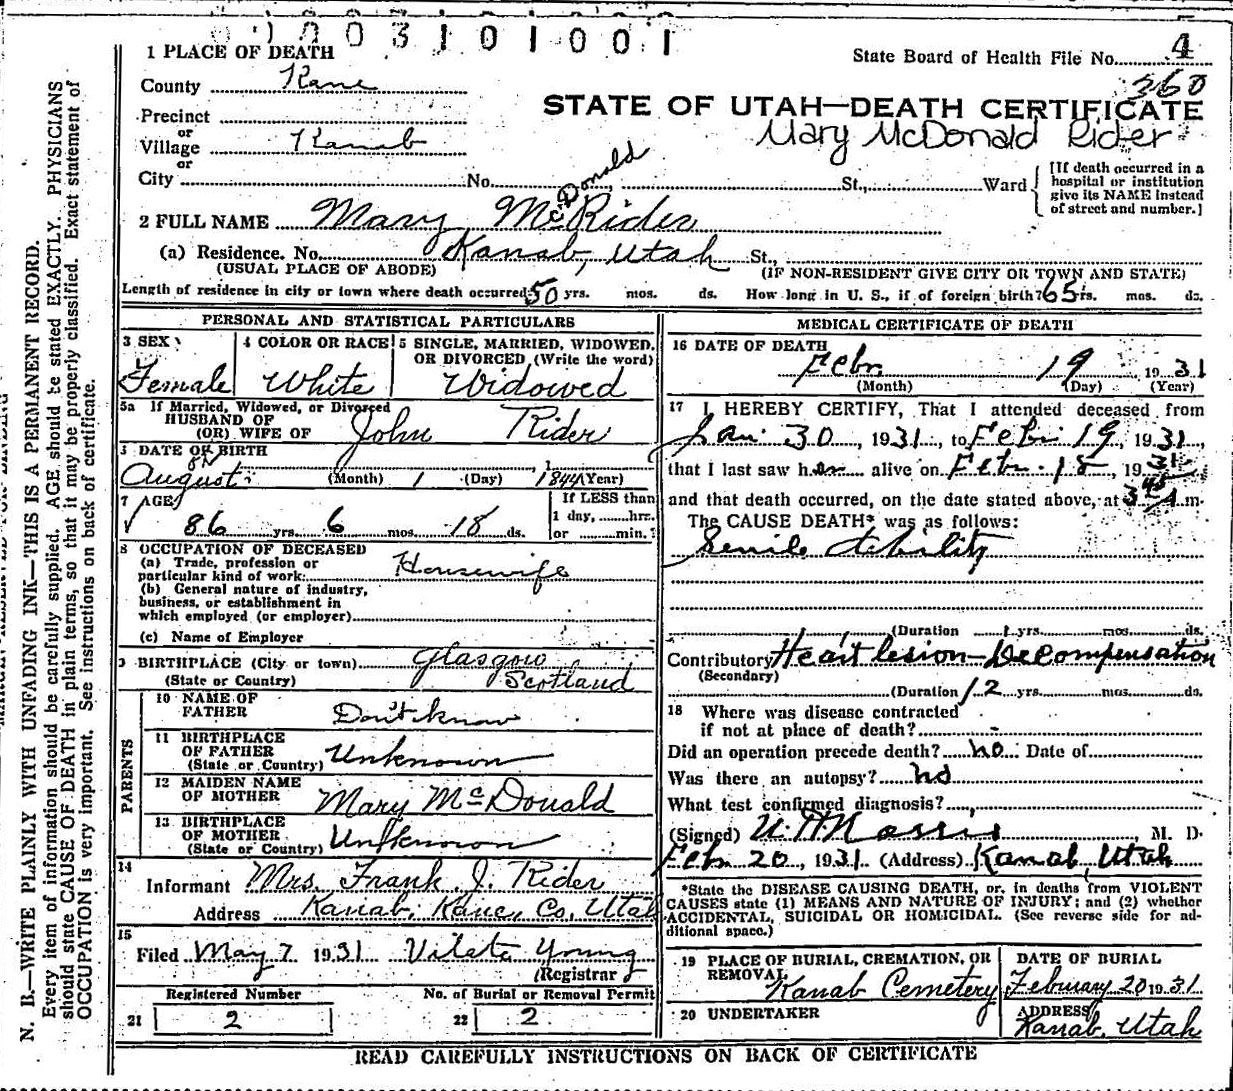 1 0 0 3 1 0 1 0 0 1
1 PLACE OF DEATH
State Board of Health File No. 4
360
County Kane
STATE OF UTAH—DEATH CERTIFICATE
Precinct
Mary McDonald Rider
or
Village Kanab
or
City No. St., Ward
[If death occurred in a
hospital or institution
give its NAME instead
of street and number.]
McDonald
2 FULL NAME Mary Mc Rider
(a) Residence. No. Kanab, Utah St.,
(USUAL PLACE OF ABODE) (IF NON-RESIDENT GIVE CITY OR TOWN AND STATE)
Length of residence in city or town where death occurred 50 yrs. mos. ds. How long in U. S., if of foreign birth? 65 rs. mos. ds.
PERSONAL AND STATISTICAL PARTICULARS
3 SEX 4 COLOR OR RACE 5 SINGLE, MARRIED, WIDOWED,
OR DIVORCED (Write the word)
Female White Widowed
5a If Married, Widowed, or Divorced
HUSBAND OF
(OR) WIFE OF John Rider
DATE OF BIRTH
August (Month) 1 (Day) 1844 (Year)
7 AGE
86 yrs. 6 mos. 18 ds.
If LESS than
1 day, hrs.
or min.
8 OCCUPATION OF DECEASED
(a) Trade, profession or
particular kind of work: Housewife
(b) General nature of industry,
business, or establishment in
which employed (or employer)
(c) Name of Employer
9 BIRTHPLACE (City or town) Glasgow
(State or Country) Scotland
PARENTS
10 NAME OF
FATHER Don't know
11 BIRTHPLACE
OF FATHER
(State or Country) Unknown
12 MAIDEN NAME
OF MOTHER Mary McDonald
13 BIRTHPLACE
OF MOTHER
(State or Country) Unknown
14
Informant Mrs. Frank J. Rider
Address Kanab, Kane, Co. Utah
15
Filed May 7 1931 Vilate Young
(Registrar
Registered Number No. of Burial or Removal Permit
21 2 22 2
MEDICAL CERTIFICATE OF DEATH
16 DATE OF DEATH
Febr 19 1931
(Month) (Day) (Year)
17 I HEREBY CERTIFY, That I attended deceased from
Jan. 30, 1931, to Febr 19, 1931,
that I last saw her alive on Febr. 18, 1931
and that death occurred, on the date stated above, at 3 45 A m.
The CAUSE DEATH* was as follows:
Senile debility
(Duration yrs. mos. ds.
Contributory Heart lesion—Decompensation
(Secondary)
(Duration 12 yrs. mos. ds.
18 Where was disease contracted
if not at place of death? -
Did an operation precede death? no Date of
Was there an autopsy? no
What test confirmed diagnosis?
(Signed) Norris, M. D.
Feb 20, 1931. (Address) Kanab, Utah
*State the DISEASE CAUSING DEATH, or, in deaths from VIOLENT
CAUSES state (1) MEANS AND NATURE OF INJURY; and (2) whether
ACCIDENTAL, SUICIDAL OR HOMICIDAL. (See reverse side for ad-
ditional space.)
19 PLACE OF BURIAL, CREMATION, OR
REMOVAL
Kanab Cemetery
DATE OF BURIAL
February 20 1931
20 UNDERTAKER
ADDRESS
Kanab, Utah
READ CAREFULLY INSTRUCTIONS ON BACK OF CERTIFICATE
N. B.—WRITE PLAINLY WITH UNFADING INK—THIS IS A PERMANENT RECORD.
Every item of information should be carefully supplied. AGE should be stated EXACTLY. PHYSICIANS
should state CAUSE OF DEATH in plain terms, so that it may be properly classified. Exact statement of
OCCUPATION is very important. See instructions on back of certificate.